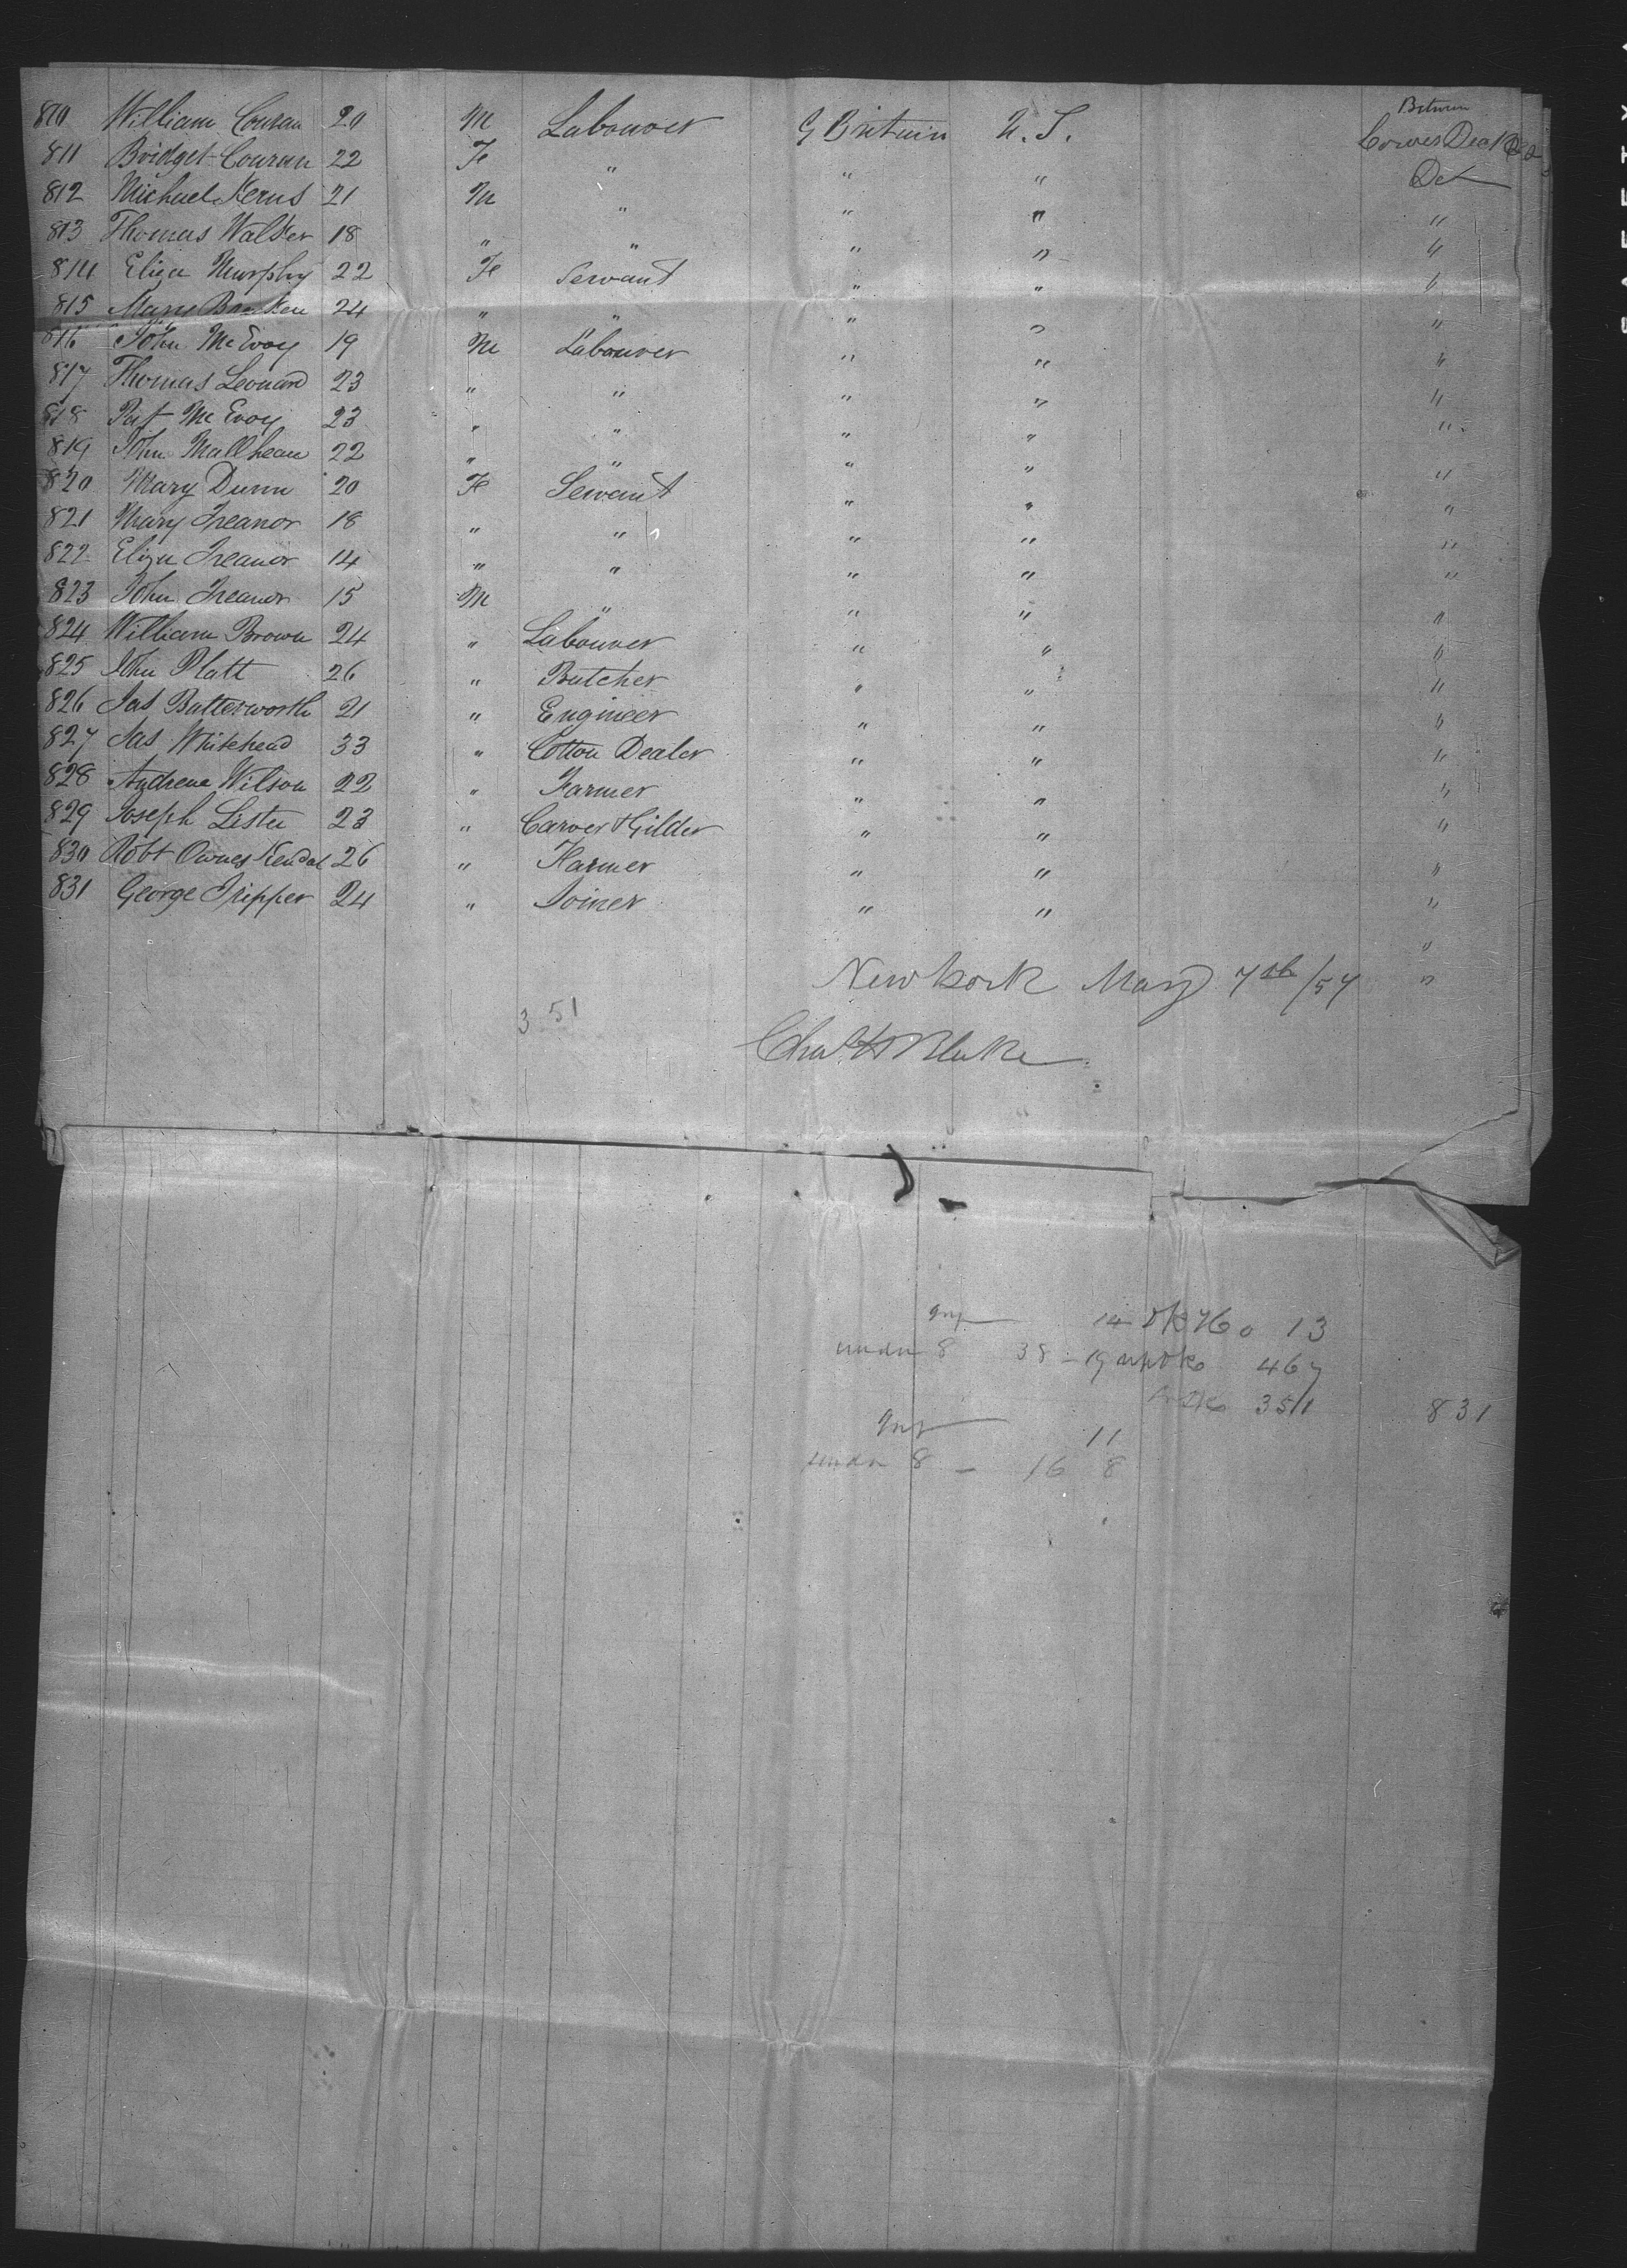 Between
810 William Couran 20 M Labourer G Britain U.S. Lower Deck
811 Bridget Couran 22 Fe " " " Do
812 Michael Kerns 21 M " " " "
813 Thomas Walker 18 " " " " "
814 Eliza Murphy 22 Fe Servant " " "
815 Mary 24 " " " " "
816 John McEvoy 19 M Labourer " " "
817 Thomas Leonard 23 " " " " "
818 Pat McEvoy 23 " " " " "
819 John 22 " " " " "
820 Mary Dunn 20 Fe Servant " " "
821 Mary Treanor 18 " " " " "
822 Eliza Treanor 14 " " " " "
823 John Treanor 15 M " " " "
824 William Brown 24 " Labourer " " "
825 John Platt 26 " Butcher " " "
826 Jas Butterworth 21 " Engineer " " "
827 Jas Whitehead 33 " Cotton Dealer " " "
828 Andrew Wilson 22 " Farmer " " "
829 Joseph Lister 23 " Carver & Gilder " " "
830 Robt Ownes Kendal 26 " Farmer " " "
831 George Tripper 24 " Joiner " " "
"
New York May 7th/57 "
351
Chas H Blake
Inf 14 13
under 8 38 - 19 467
351 831
Inf 11
under 8 - 16 8